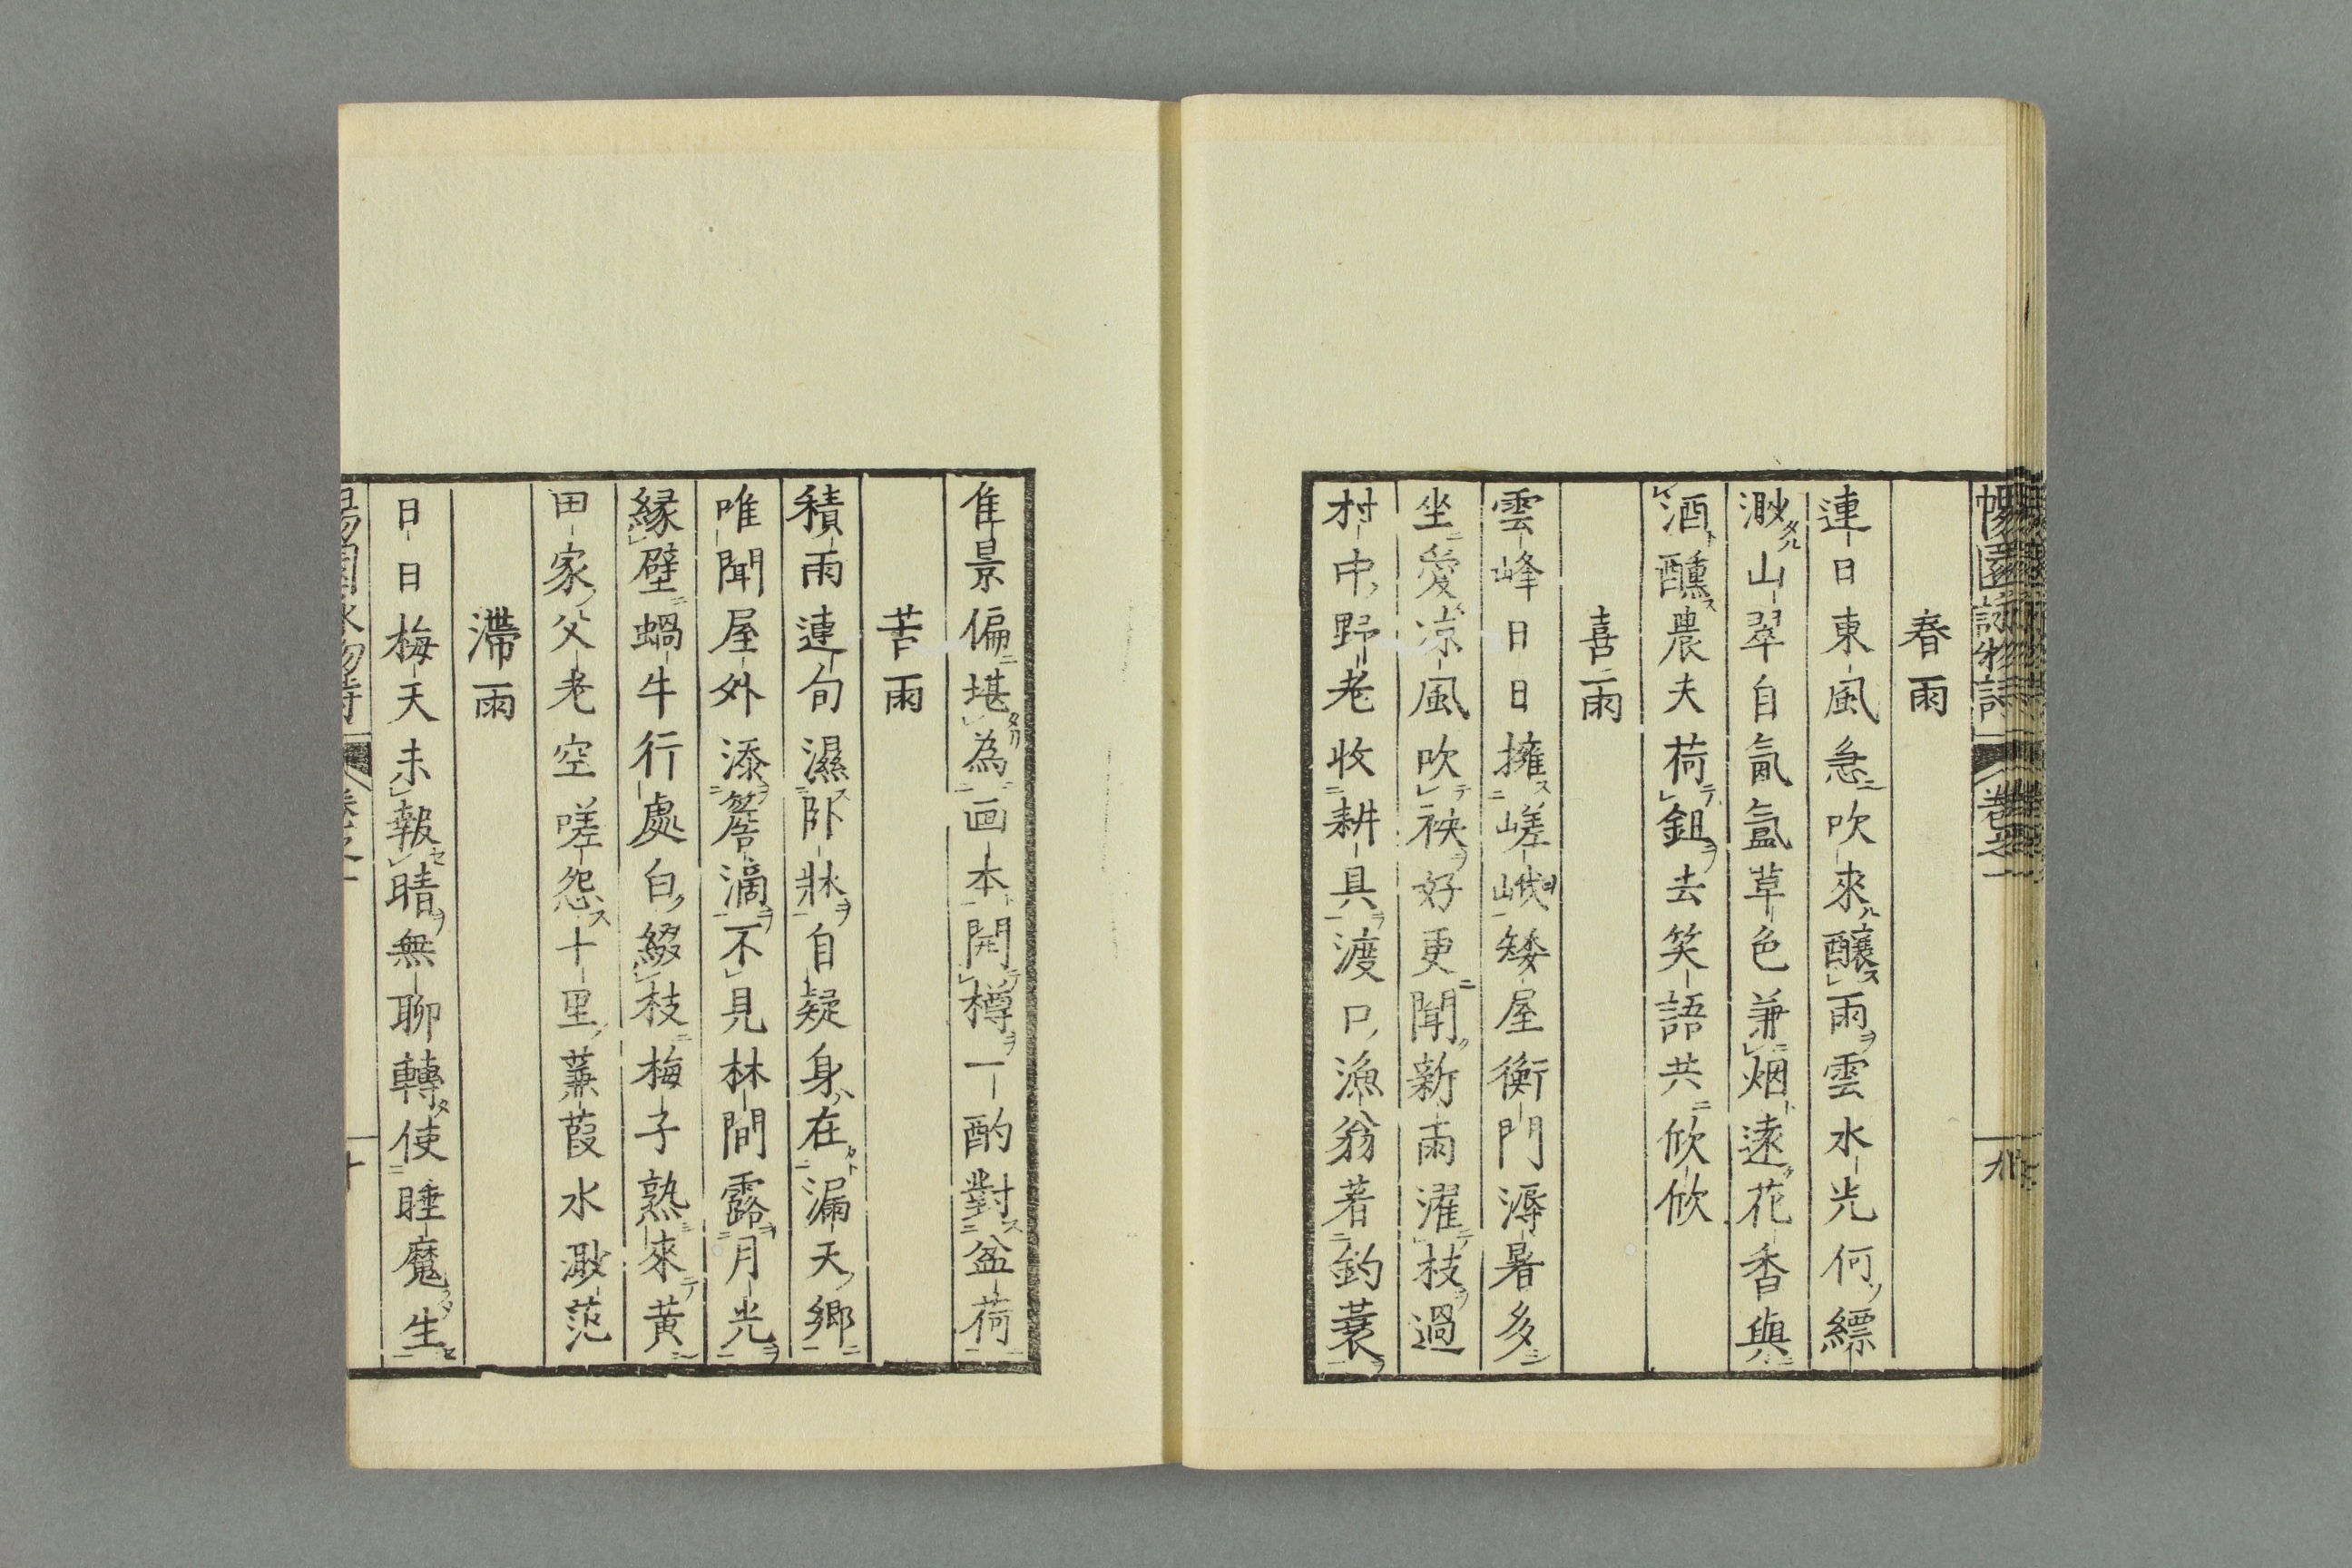 暢園詠物詩 卷之一 九
春雨
連日東風急吹來釀雨雲水光何縹
渺山翠自氤氳草色兼烟遠花香與
酒醺農夫荷鉏去笑語共欣欣
喜雨
雲峰日日擁嵯峨矮屋衡門溽暑多
坐愛凉風吹袂好更聞新雨濯枝過
村中野老收耕具渡口漁翁著釣蓑
隹景偏堪為画本開樽一酌對盆荷
苦雨
積雨連旬濕臥牀自疑身在漏天鄉
唯聞屋外添簷滴不見林間露月光
緣壁蝸牛行處白綴枝梅子熟來黃
田家父老空嗟怨十里蒹葭水渺茫
滯雨
日日梅天未報晴無聊轉使睡魔生